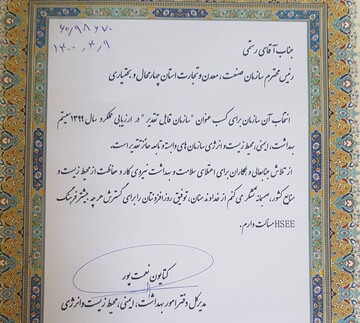 ۶۰/۹۸۶۷۰
۱۴۰۰/۴/۹
جناب آقای رستمی
رئیس محترم سازمان صنعت، معدن و تجارت استان چهارمحال و بختیاری
انتخاب آن سازمان برای کسب عنوان "سازمان قابل تقدیر" در ارزیابی عملکرد سال ۱۳۹۹ سیستم
بهداشت، ایمنی، محیط زیست و انرژی سازمان های وابسته و تابعه حائز تقدیر است.
از تلاش جنابعالی و همکاران برای اعتلای سلامت و بهداشت نیروی کار و حفاظت از محیط زیست و
منابع کشور، صمیمانه تشکر می کنم از خداوند منان، توفیق روز افزونتان را برای گسترش هر چه بیشتر فرهنگ
HSEE مسالت دارم.
کتایون نعمت پور
مدیر کل دفتر امور بهداشت، ایمنی، محیط زیست و انرژی